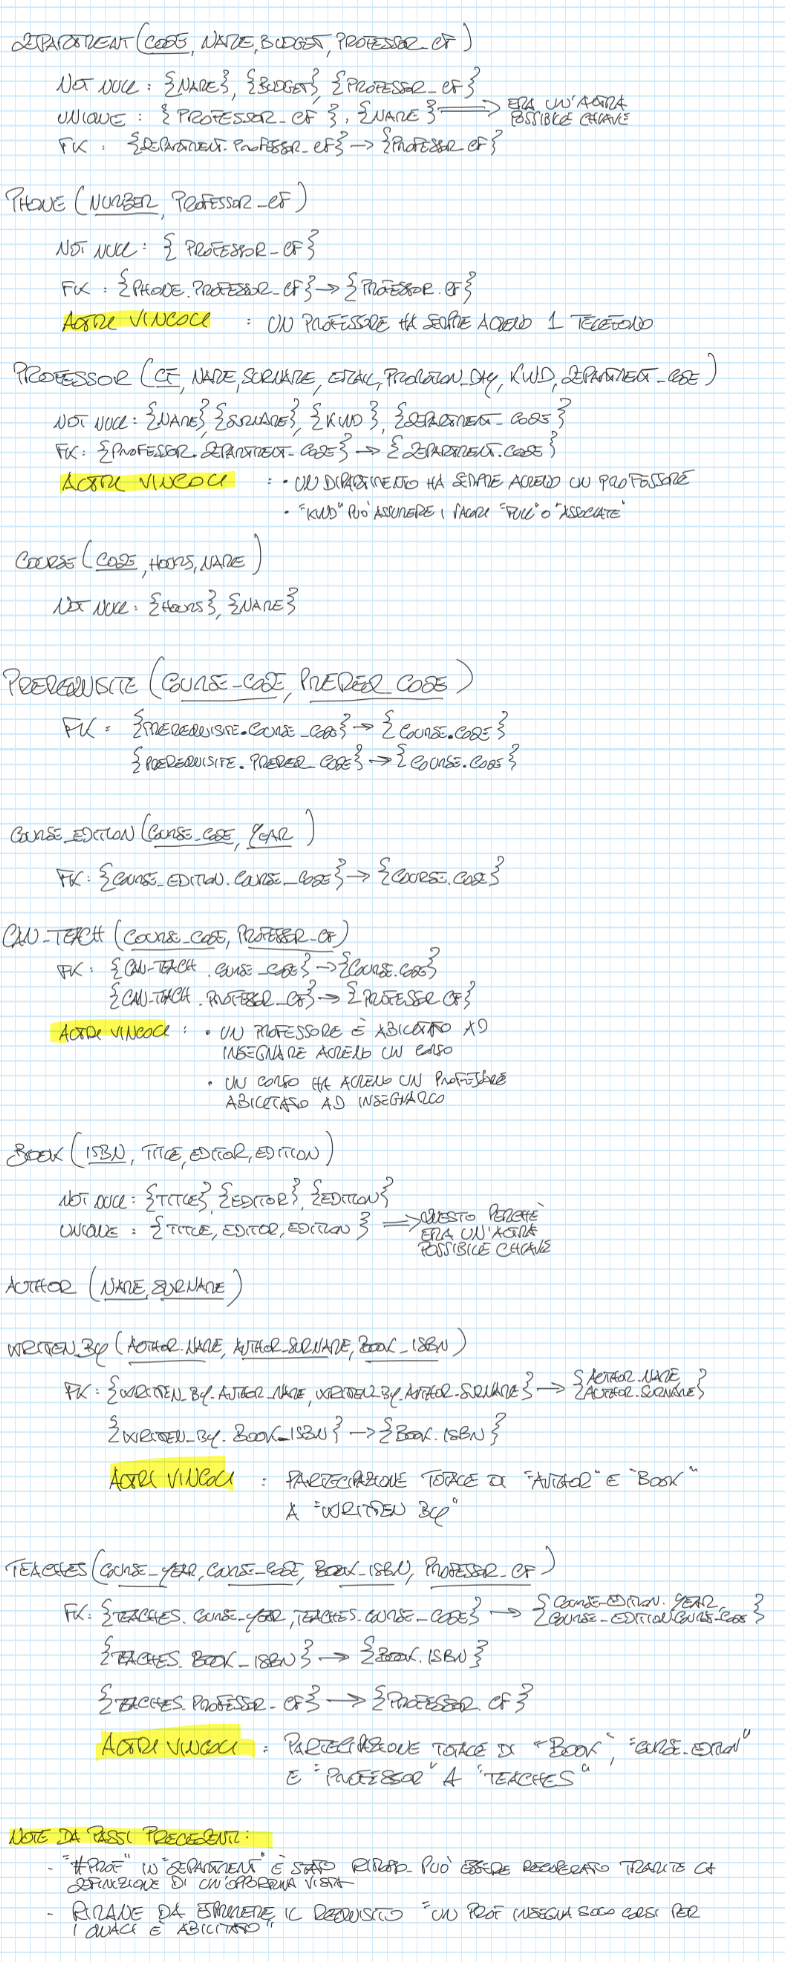 DEPARTMENT (CODE, NAME, BUDGET, PROFESSOR_CF)
NOT NULL : {NAME}, {BUDGET}, {PROFESSOR_CF}
UNIQUE : {PROFESSOR_CF}, {NAME} ⟹ ERA UN'ALTRA
POSSIBILE CHIAVE
FK : {DEPARTMENT.PROFESSOR_CF} → {PROFESSOR.CF}
PHONE (NUMBER, PROFESSOR_CF)
NOT NULL : {PROFESSOR_CF}
FK : {PHONE.PROFESSOR_CF} → {PROFESSOR.CF}
ALTRI VINCOLI : UN PROFESSORE HA SEMPRE ALMENO 1 TELEFONO
PROFESSOR (CF, NAME, SURNAME, EMAIL, PROMOTION_DAY, KIND, DEPARTMENT_CODE)
NOT NULL : {NAME}, {SURNAME}, {KIND}, {DEPARTMENT_CODE}
FK : {PROFESSOR.DEPARTMENT_CODE} → {DEPARTMENT.CODE}
ALTRI VINCOLI : • UN DIPARTIMENTO HA SEMPRE ALMENO UN PROFESSORE
• "KIND" PUÒ ASSUMERE I VALORI "FULL" O "ASSOCIATE"
COURSE (CODE, HOURS, NAME)
NOT NULL : {HOURS}, {NAME}
PREREQUISITE (COURSE_CODE, PREREQ_CODE)
FK : {PREREQUISITE.COURSE_CODE} → {COURSE.CODE}
{PREREQUISITE.PREREQ_CODE} → {COURSE.CODE}
COURSE_EDITION (COURSE_CODE, YEAR)
FK : {COURSE_EDITION.COURSE_CODE} → {COURSE.CODE}
CAN_TEACH (COURSE_CODE, PROFESSOR_CF)
FK : {CAN_TEACH.COURSE_CODE} → {COURSE.CODE}
{CAN_TEACH.PROFESSOR_CF} → {PROFESSOR.CF}
ALTRI VINCOLI : • UN PROFESSORE È ABILITATO AD
INSEGNARE ALMENO UN CORSO
• UN CORSO HA ALMENO UN PROFESSORE
ABILITATO AD INSEGNARLO
BOOK (ISBN, TITLE, EDITOR, EDITION)
NOT NULL : {TITLE}, {EDITOR}, {EDITION}
UNIQUE : {TITLE, EDITOR, EDITION} ⟹ QUESTO PERCHÈ
ERA UN'ALTRA
POSSIBILE CHIAVE
AUTHOR (NAME, SURNAME)
WRITTEN_BY (AUTHOR_NAME, AUTHOR_SURNAME, BOOK_ISBN)
FK : {WRITTEN_BY.AUTHOR_NAME, WRITTEN_BY.AUTHOR_SURNAME} → {AUTHOR.NAME,
AUTHOR.SURNAME}
{WRITTEN_BY.BOOK_ISBN} → {BOOK.ISBN}
ALTRI VINCOLI : PARTECIPAZIONE TOTALE DI "AUTHOR" E "BOOK"
A "WRITTEN BY"
TEACHES (COURSE_YEAR, COURSE_CODE, BOOK_ISBN, PROFESSOR_CF)
FK : {TEACHES.COURSE_YEAR, TEACHES.COURSE_CODE} → {COURSE_EDITION.YEAR,
COURSE_EDITION.COURSE_CODE}
{TEACHES.BOOK_ISBN} → {BOOK.ISBN}
{TEACHES.PROFESSOR_CF} → {PROFESSOR.CF}
ALTRI VINCOLI : PARTECIPAZIONE TOTALE DI "BOOK", "COURSE_EDITION"
E "PROFESSOR" A "TEACHES"
NOTE DA PASSI PRECEDENTI:
- "#PROF" IN "DEPARTMENT" È STATO RIMOSSO. PUÒ ESSERE RECUPERATO TRAMITE LA
DEFINIZIONE DI UN'OPPORTUNA VISTA
- RIMANE DA ESPRIMERE IL REQUISITO "UN PROF INSEGNA SOLO CORSI PER
I QUALI È ABILITATO"